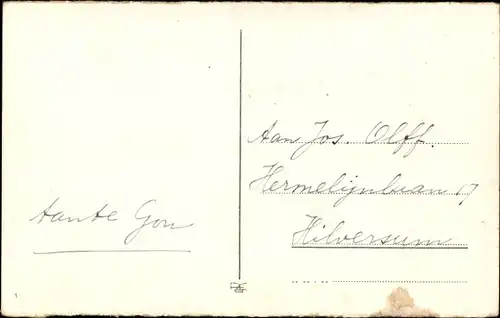 tante Gon
Aan Jos. Olff.
Hermelijnlaan 17
Hilversum